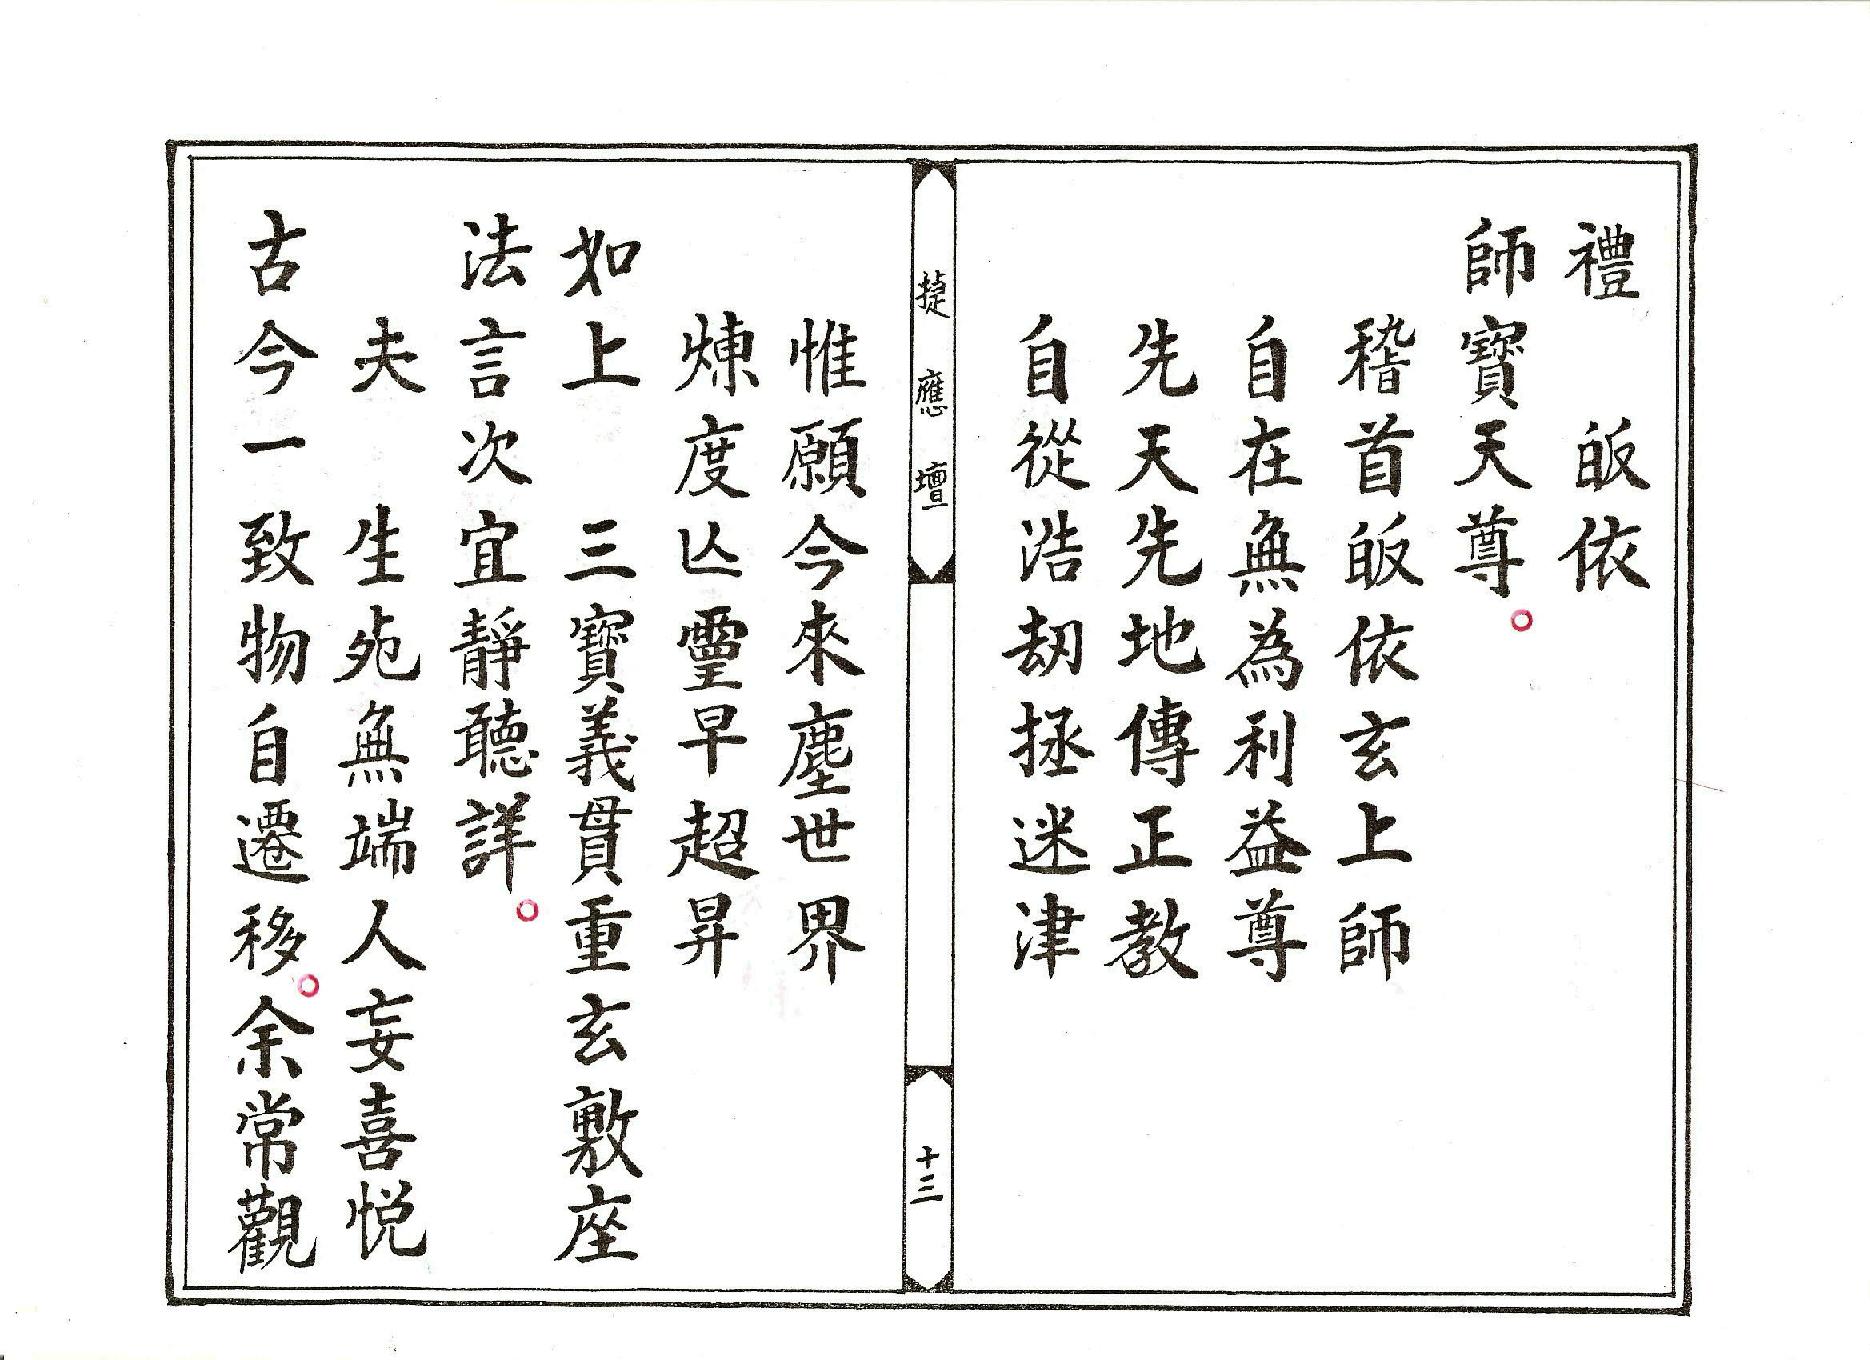 禮　皈依
師寶天尊。
稽首皈依玄上師
自在無為利益尊
先天先地傳正教
自從浩劫拯迷津
捷應壇
十三
惟願今來塵世界
煉度亾靈早超昇
如上　三寶義貫重玄敷座
法言次宜靜聽詳。
夫　生死無端人妄喜悦
古今一致物自遷移。余常觀